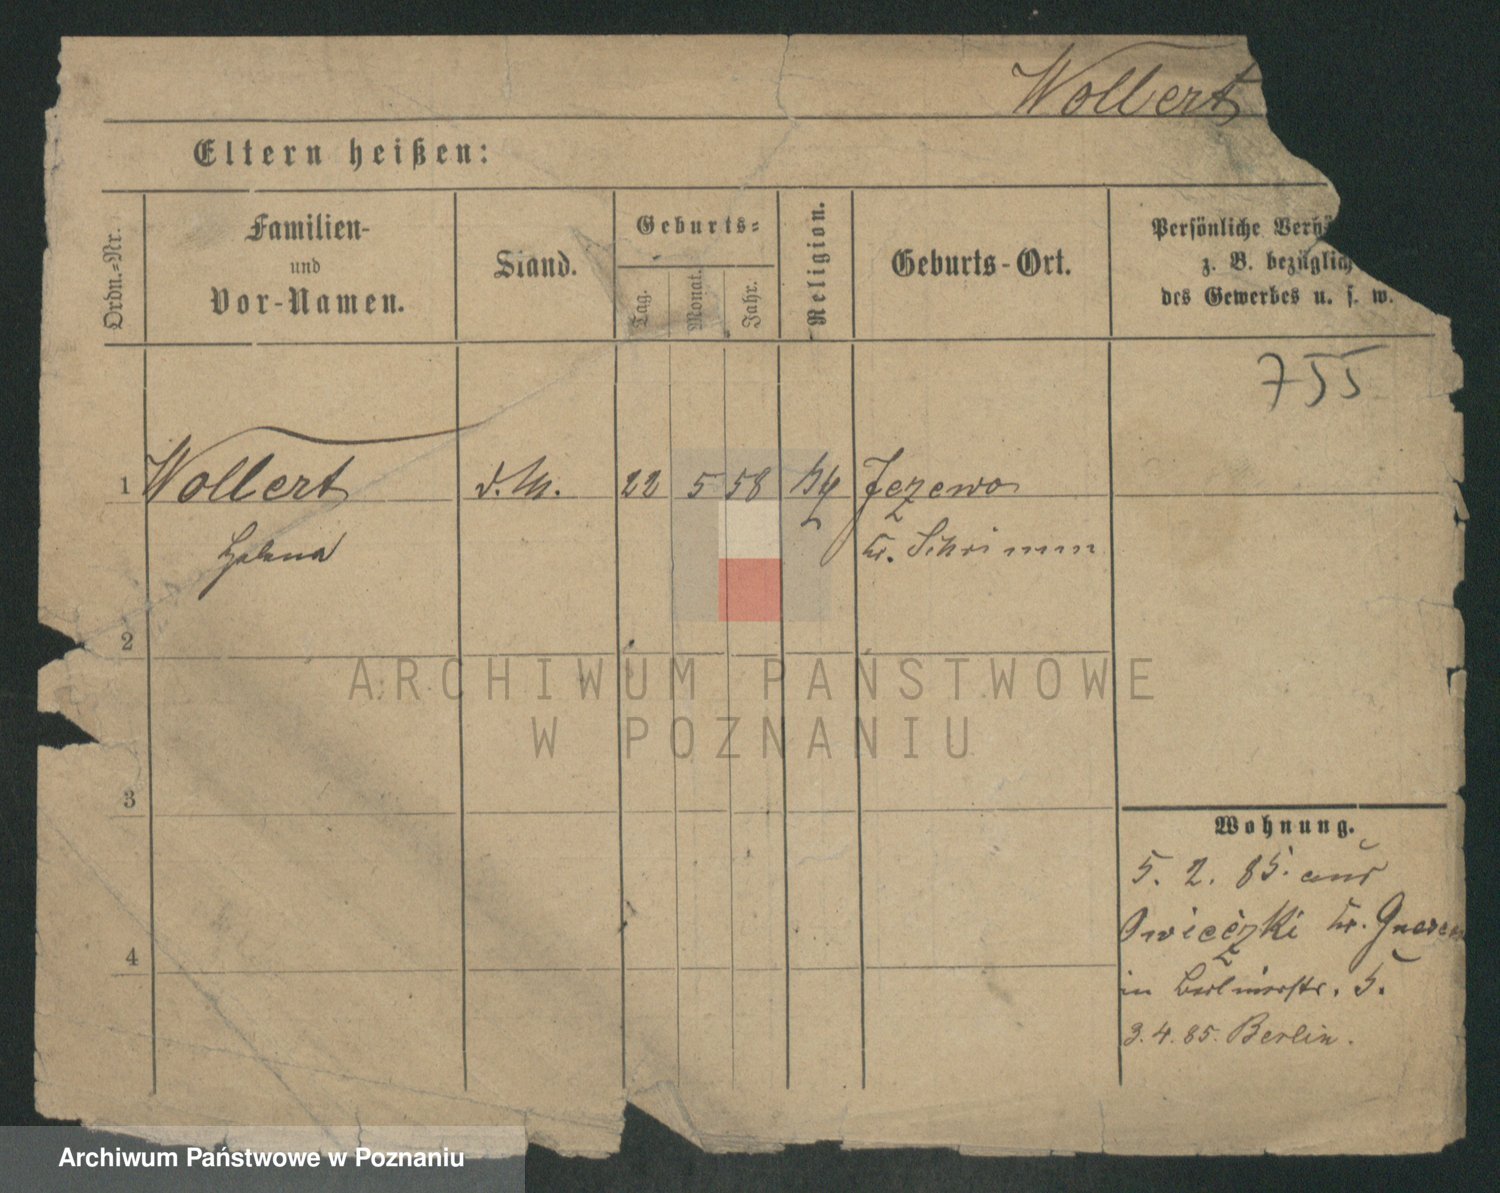 Wollert
Eltern heißen:
Ordn.-Nr.
Familien-
und
Vor-Namen.
Stand.
Geburts-
Tag.
Monat.
Jahr.
Religion.
Geburts-Ort.
Persönliche Verhä
z. B. bezüglich
des Gewerbes u. s. w.
755
1 Wollert d. M. 22 5 58 Jeżewo
Helena Kr. Schrimm
2
ARCHIWUM PAŃSTWOWE
W POZNANIU
3
Wohnung.
5. 2. 85. aus
Owieczki Kr. Gnesen
4
in Berlinerstr. 5.
3. 4. 85. Berlin.
Archiwum Państwowe w Poznaniu